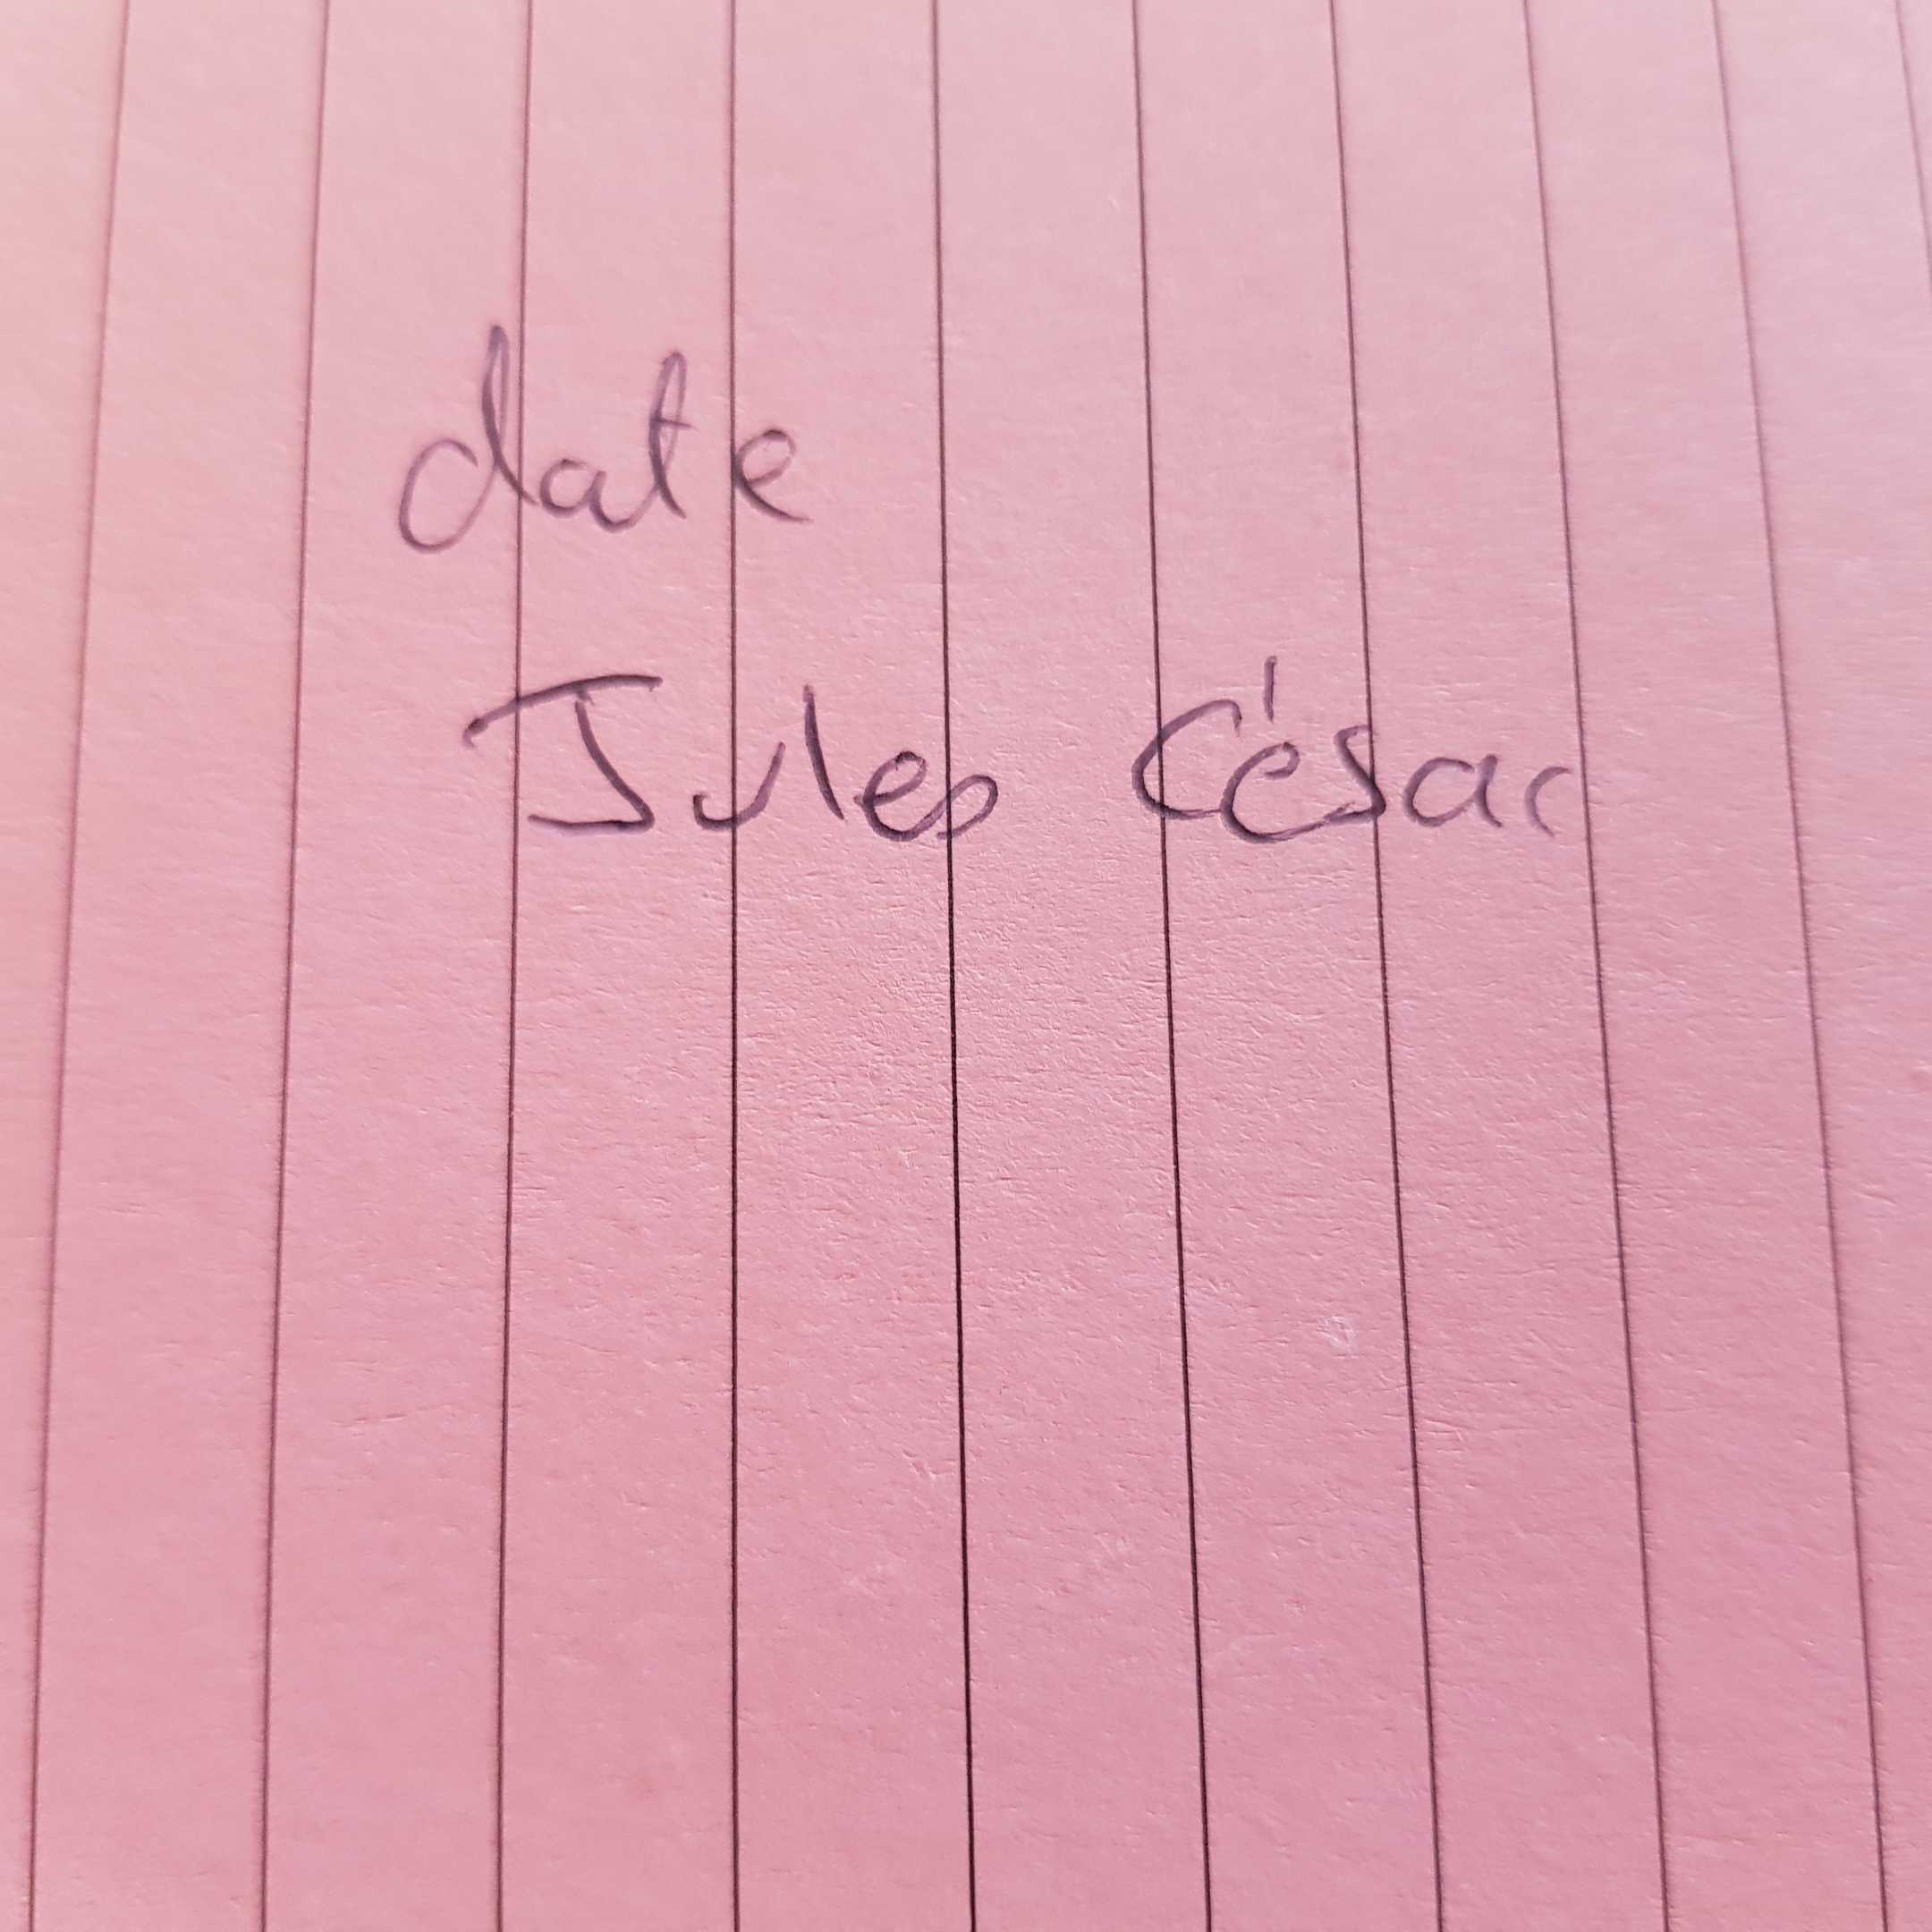 date
Jules César